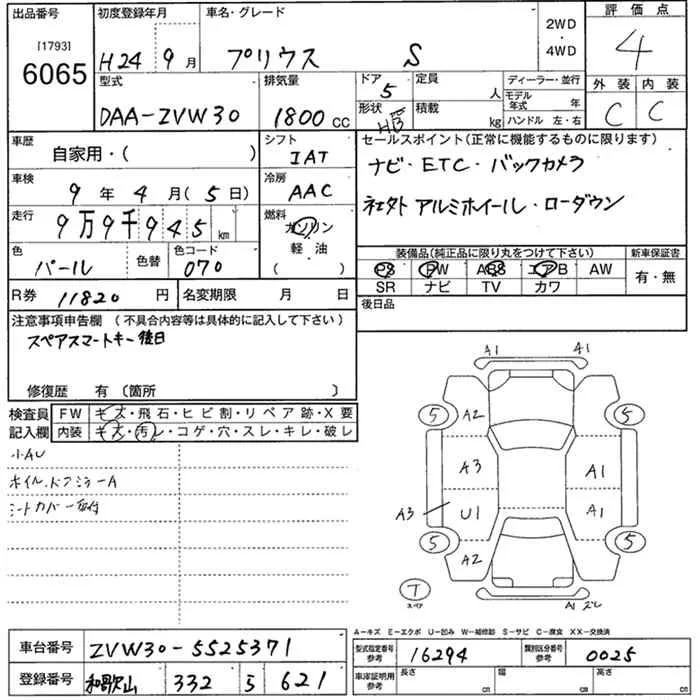 出品番号 初度登録年月 車名・グレード 2WD・4WD 評価点
[1793]
6065 H24 9月 プリウス S 4
型式 排気量 ドア 定員 ディーラー・並行 外装 内装
DAA-ZVW30 1800 CC 5 人 モデル年式 年 C C
形状 HB 積載 kg ハンドル 左・右
車歴 シフト セールスポイント(正常に機能するものに限ります)
自家用・( ) IAT ナビ・ETC・バックカメラ
車検 冷房
9年4月(5日) AAC 社外アルミホイール・ローダウン
走行 燃料
9万9千945km ガソリン
軽・油
( )
色 色替 色コード 装備品(純正品に限り丸をつけて下さい) 新車保証書
パール 070 PS PW ABS エアB AW 有・無
SR ナビ TV カワ
R券 11820円 名変期限 月 日 後日品
注意事項申告欄 (不具合内容等は具体的に記入して下さい)
スペアスマートキー後日
修復歴 有 〔箇所 〕
検査員記入欄 FW キズ・飛石・ヒビ割・リペア跡・X要
内装 キズ・汚レ・コゲ・穴・スレ・キレ・破レ
小AU
ホイル、ドアミラーA
シートカバー
A1 A1
5 A2 5
A3 A1
A3 U1 A1
5 A2 5
T
スペア
A1 ズレ
A-キズ E-エクボ U-凹み W-補修跡 S-サビ C-腐食 XX-交換済
車台番号 ZVW30-5525371 型式指定番号 参考 16294 類別区分番号 参考 0025
登録番号 和歌山 332 ら 621 車庫証明用 参考 長さ cm 幅 cm 高さ cm